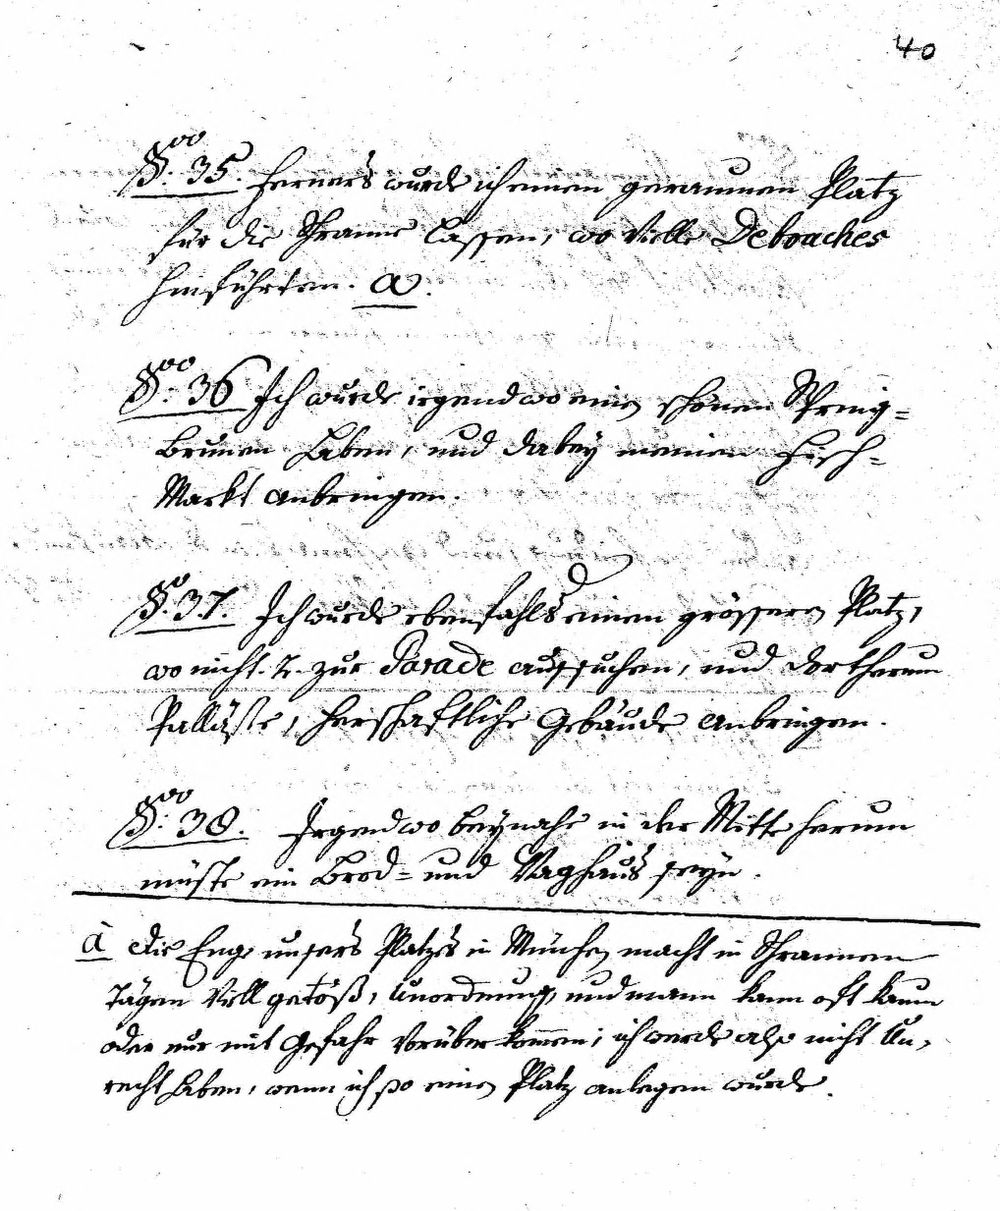 40
§oo: 35. Ferners wurde ich einen geraumen Platz
für die Schranne lassen, wo Vielle Debouches
hinführten. a.
§oo: 36 Ich wurde irgendwo einen schönen Spring=
Brunen haben, und dabey meinen Fisch=
Markt anbringen.
§o. 37. Ich wurde ebenfahls einen grösseren Platz,
wo nicht. 2. zur Parade aussuchen, und dortherum
Palläste, herschaftliche Gebäude anbringen.
§oo: 38. Irgendwo beynahe in der Mitte herum
müste ein Brod= und Waghaus seyn.
a die Enge unsers Platzes in München macht in Schrannen
Tägen Vill getöß, Unordnung, und mann kann oft kaum
oder nur mit Gefahr vorüber kommen; ich werde also nicht Un,
recht haben, wenn ich so einen Platz anlegen wurde.